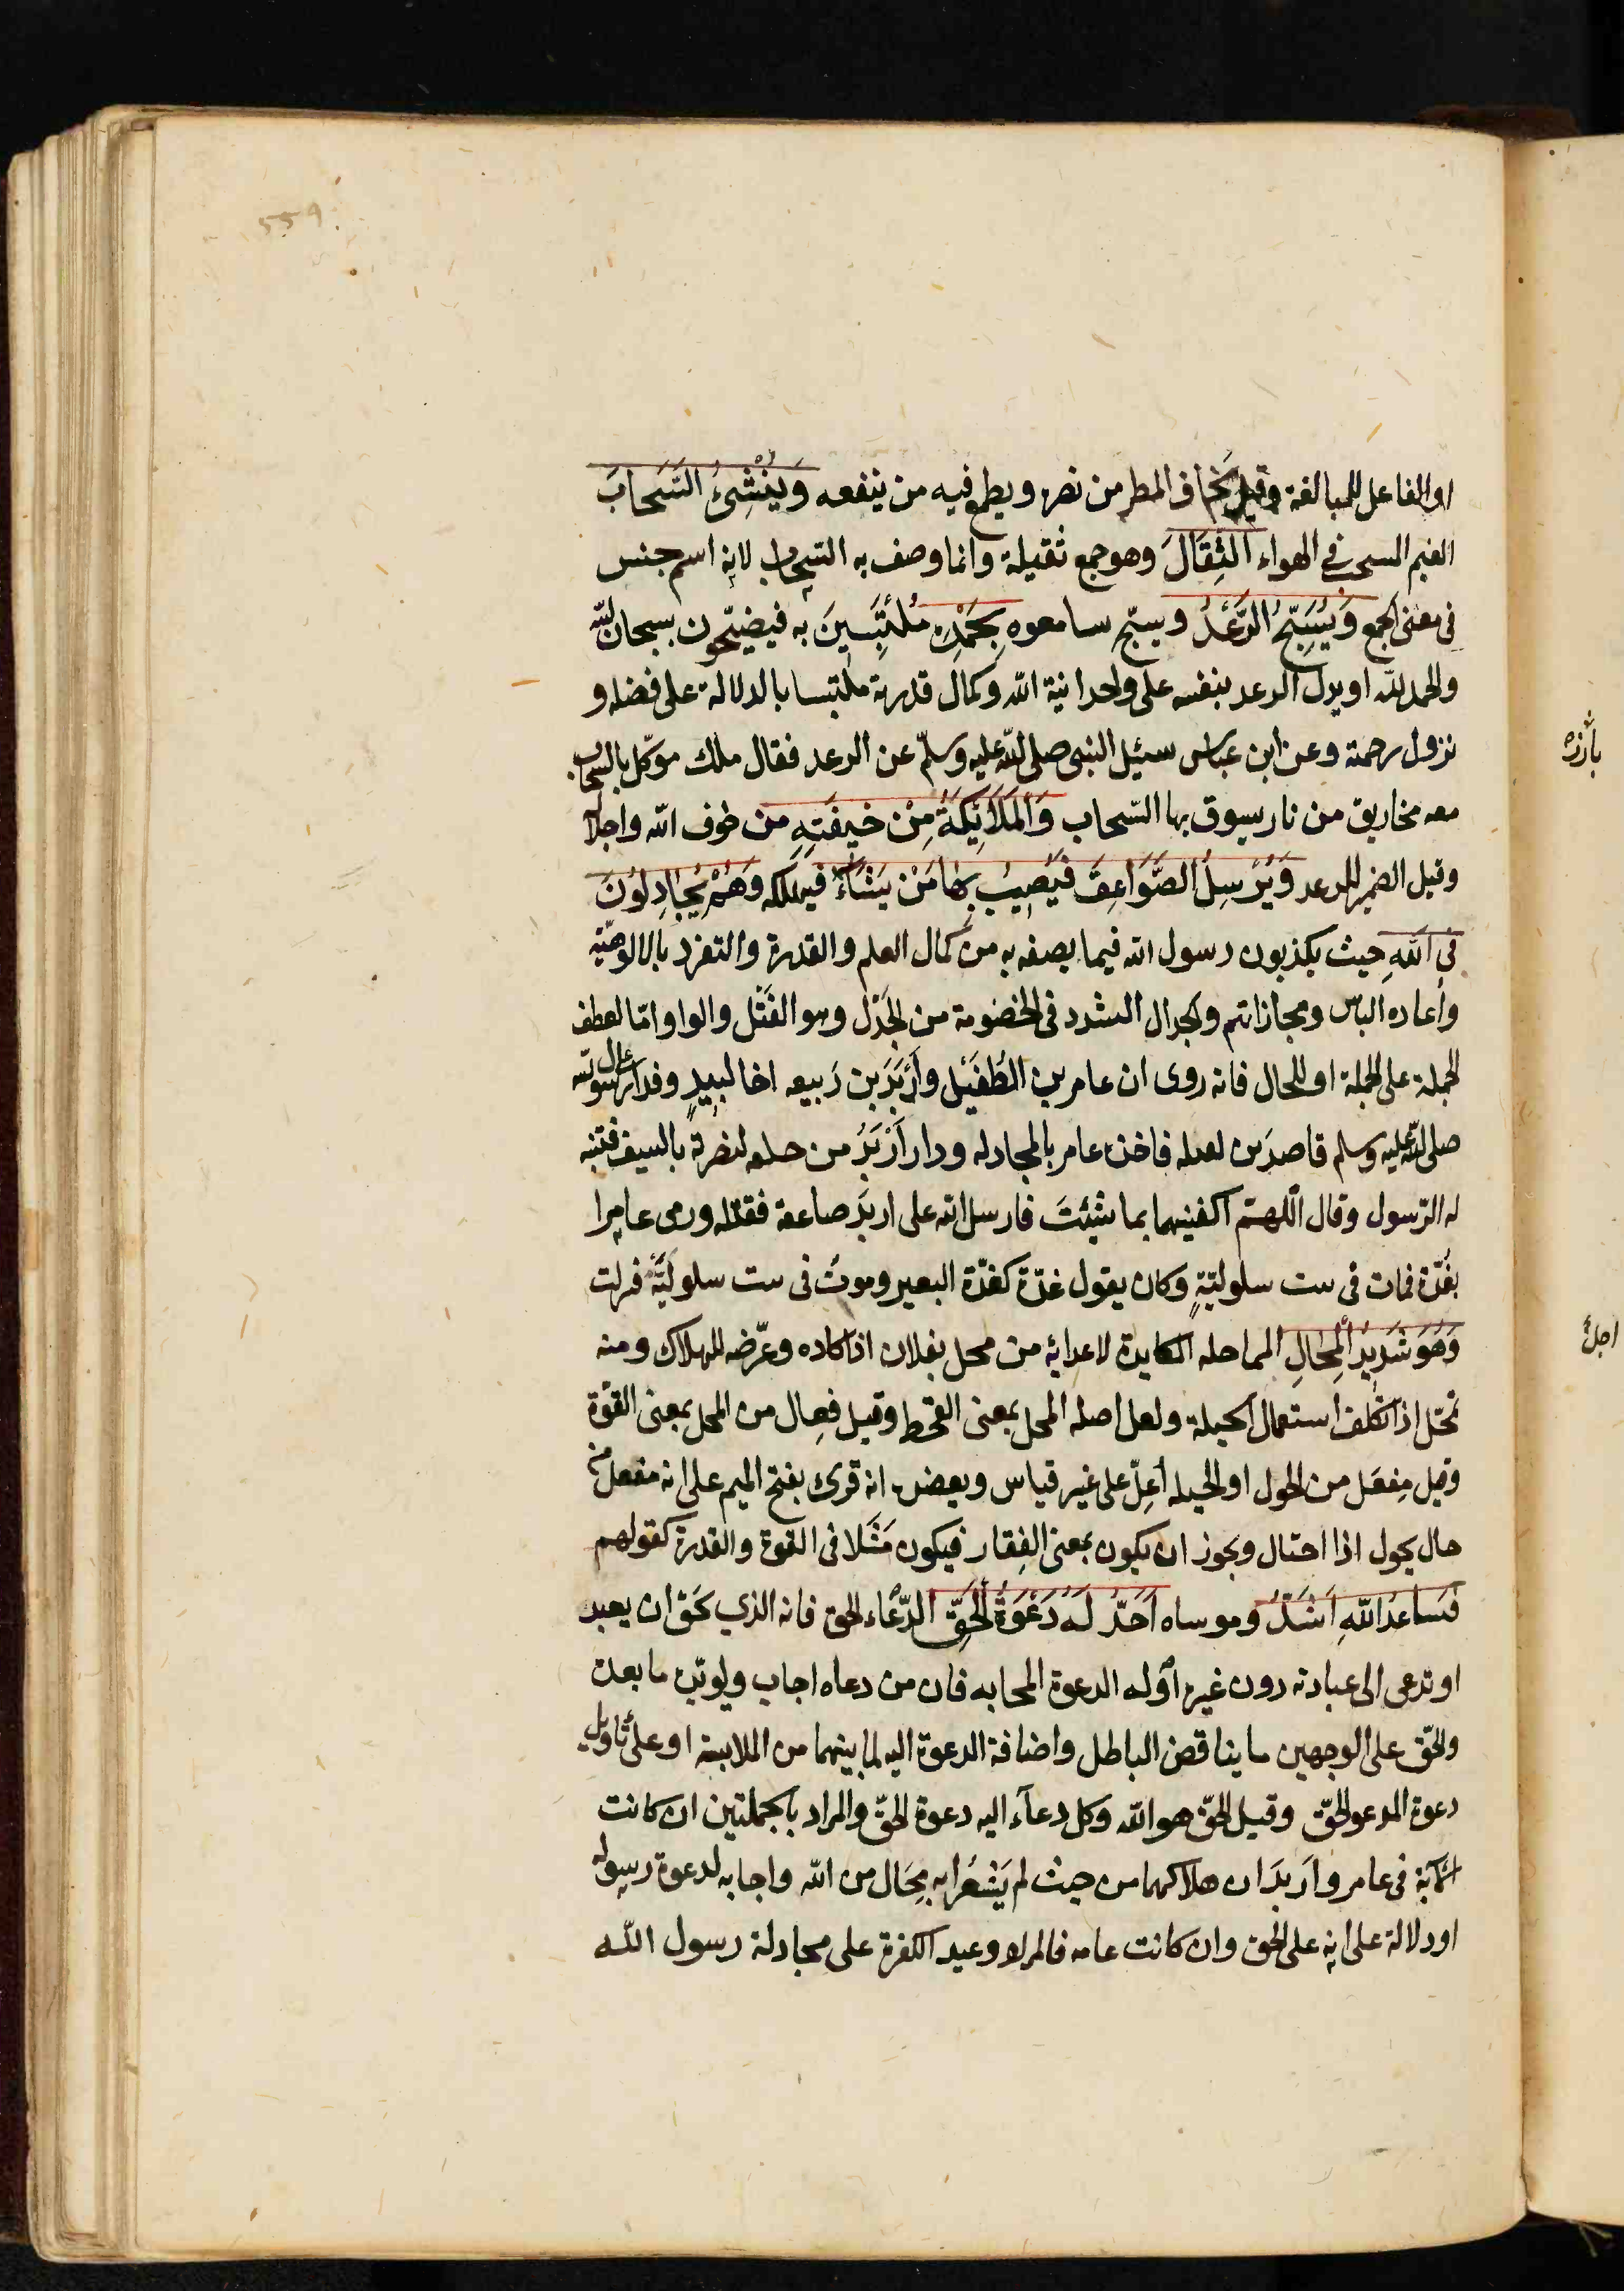 او الفاعل للمبالغة وقيل يخاف المطر من نضره ويطمع فيه من ينفعه وَيُنْشِئُ السَّحَابَ
الغيم السحب في الهواء الثِّقَالَ وهو جمع ثقيلة وانما وصف به السّحاب لانه اسم جنس
فى معنى الجمع وَيُسَبِّحُ الرَّعْدُ ويسبّح سامعوه بِحَمْدِهِ مُلْتَبِسِينَ به فيضجّون بسبحان الله
والحمد لله او يدل الرعد بنفسه على وحدانية الله وكمال قدرته ملتبسا بالدلالة على فضله و
نزول رحمته وعن ابن عباس سئيل النبى صلى الله عليه وسلّم عن الرعد فقال ملك موكّل بالسّحاب
معه مخاريق من نار يسوق بها السّحاب وَالْمَلَائِكَةُ مِنْ خِيفَتِهِ من خوف الله واجلاله
وقيل الضمير للرعد وَيُرْسِلُ الصَّوَاعِقَ فَيُصِيبُ بِهَا مَنْ يَشَاءُ فيهلكه وَهُمْ يُجَادِلُونَ
فِي اللَّهِ حيث يكذبون رسول الله فيما يصفه به من كمال العلم والقدرة والتفرد بالالوهيّة
واعادة الناس ومجازاتهم والجدال التشدد فى الخصومة من الجَدْل وهو الفَتْل والواو امّا لعطف
الجملة على الجملة او للحال فانه روى ان عامر بن الطُفَيْل وأَرْبَدَ بن رَبيعه اخا لبيدٍ وفدا على رسول الله
صلى الله عليه وسلم قاصدَين لقتله فاخذه عامر بالمجادله ودار أَرْبَدُ من خلفه ليضربه بالسيف فتنبه
له الرّسول وقال اللّهمّ اكفنيهما بما شِئتَ فارسل الله على اربَد صاعقة فقتلته ورمى عامرا
بغُدّة فمات فى بيت سلوليّةٍ وكان يقول غدّة كغدّة البعير وموتٌ فى بيت سلوليّة فنزلت
وَهُوَ شَدِيدُ الْمِحَالِ المماحله المكايدة لاعدائه من محل بفلان اذا كاده وعرّضه للهلاك ومنه
تمحّل اذا تكلف استعمال الحيلة ولعل اصله المحل بمعنى القحط وقيل فِعال من المحل بمعنى القوّة
وقيل مِفعَل من الحول او الحيله أُعِلّ على غير قياس ويعضده انه قرئ بفتح الميم على انه مفعل من
حال يحول اذا احتال ويجوز ان يكون بمعنى الفِقار فيكون مَثَلا فى القوة والقدرة كقولهم
فَسَاعدُ اللهِ اَشَدُّ وموساه اَحَدُّ لَهُ دَعْوَةُ الْحَقِّ الدّعاء الحق فانه الذي يحَق ان يعبد
او تدعى الى عبادته دون غيره او له الدعوة المجابه فان من دعاه اجاب ويؤيّده ما بعده
والحقّ على الوجهين ما يناقض الباطل واضافة الدعوة اليه لما بينهما من الملابسة او على تاويل
دعوة المدعو الحقّ وقيل الحقّ هو الله وكل دعآء اليه دعوة الحقّ والمراد بالجملتين ان كانت
الآية فى عامر واَربَدَ ان هلاكهما من حيث لم يَشعُرا به مِحَال من الله واجابه لدعوة رسوله
او دلالة على انه على الحق وان كانت عامه فالمراد وعيد الكفرة على مجادلة رسول الله